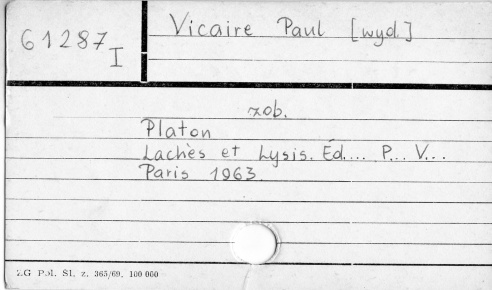 61287
I
Vicaire Paul [wyd.]
zob.
Platon
Lachès et Lysis. Éd.... P... V...
Paris 1963.
ZG Pol. Sl. z. 365/69. 100 000